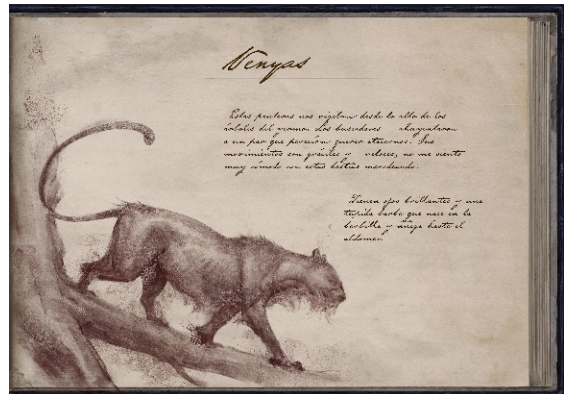 Venyas
Estas panteras nos vigilan desde lo alto de los
árboles del Los buscadores ahuyentaron
a un par que parecían querer atacarnos. Sus
movimientos son gráciles y veloces, no me siento
muy cómodo con estas bestias merodeando.
Tienen ojos brillantes y una
tupida barba que nace en la
barbilla y llega hasta el
abdomen